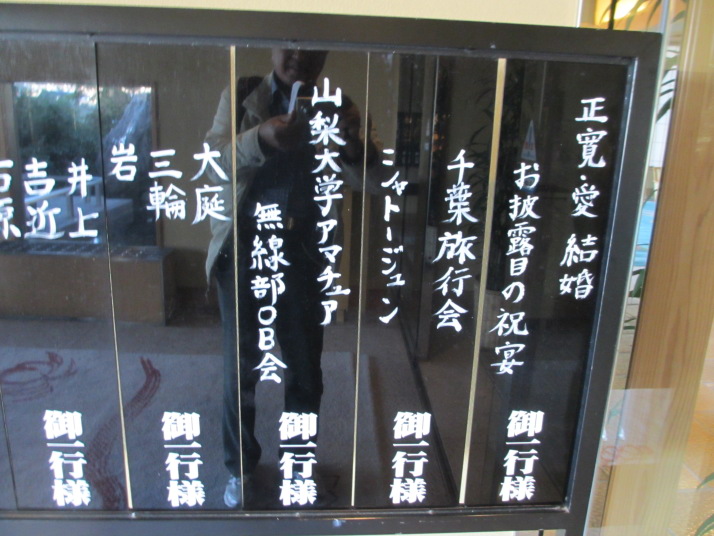 正寛・愛 結婚
お披露目の祝宴
御一行様
千葉旅行会
シャトージュン
御一行様
山梨大学アマチュア
無線部OB会
御一行様
大庭
三輪
岩
御一行様
井上
吉近
石原
御一行様